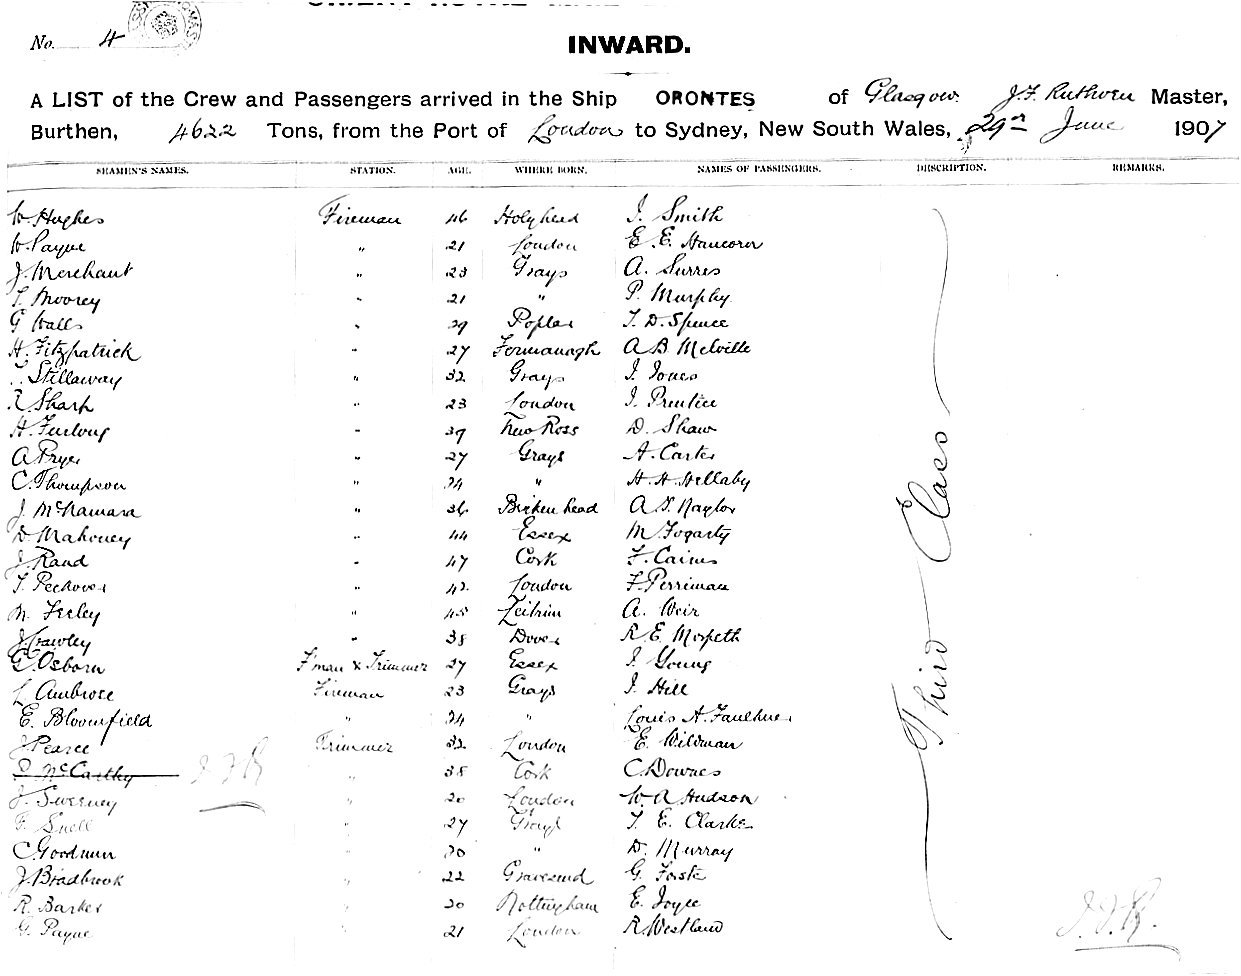 No. 4
INWARD.
A LIST of the Crew and Passengers arrived in the Ship ORONTES of Glasgow. J.F. Ruthven Master,
Burthen, 4622 Tons, from the Port of London to Sydney, New South Wales, 29th June 1907
SEAMEN'S NAMES. STATION. AGE. WHERE BORN. NAMES OF PASSENGERS. DESCRIPTION. REMARKS.
W. Hughes Fireman 46 Holyhead J. Smith
W. Payne " 21 London E. E. Hancorn
J. Merchant " 23 Grays A. Surres
T. Moorey " 21 " P. Murphy
G Walls " 29 Poplar T. D. Spence
H. Fitzpatrick " 27 Fermanagh A B Melville
Stillaway " 32 Grays J. Jones
R Sharp " 23 London J. Prentice
H. Furlong " 39 New Ross D. Shaw
A Pryer " 27 Grays A. Carter
C. Thompson " 24 " H. H. Hellaby
J. McNamara " 36 Birkenhead A. T. Naylor
D Mahoney " 44 Essex M. Fogarty
J. Rand " 47 Cork F. Cairns
T. Peckover " 42 London F. Perriman
M. Feeley " 45 Leitrim A. Weir
J Crawley " 38 Dover R E. Morpeth
G. Osborn F'man & Trimmer 27 Essex J. Young
L. Ambrose Fireman 23 Grays J. Hill
E. Bloomfield " 24 " Louis A. Faulkner
J Pearce Trimmer 32 London E. Wildman
McCarthy J.F.R " 38 Cork C. Downes
J. Sweeney " 20 London W A Hudson
F. Snell " 27 Grays T. E. Clarke
C. Goodman " 20 " D. Murray
J. Bradbrook " 22 Gravesend G. Forste
R. Barker " 20 Nottingham E. Joyce
G. Payne " 21 London R Westland
Third Class
J.F.R.